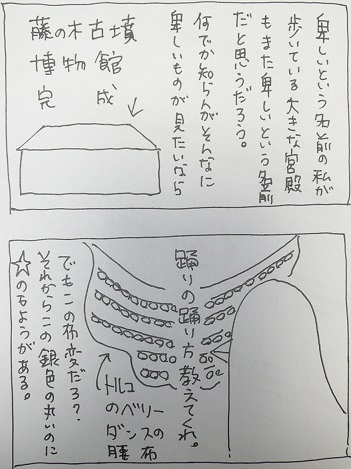 卑しいという名前の私が
歩いている大きな宮殿
もまた卑しいという名前
だと思うだろう。
何でか知らんがそんなに
卑しいものが見たいなら
藤の木古墳
博物館
完成
踊りの踊り方教えてくれ。
トルコ
のベリー
ダンスの
腰布
でもこの布変だろ?
それからこの銀色の丸いのに
☆のもようがある。